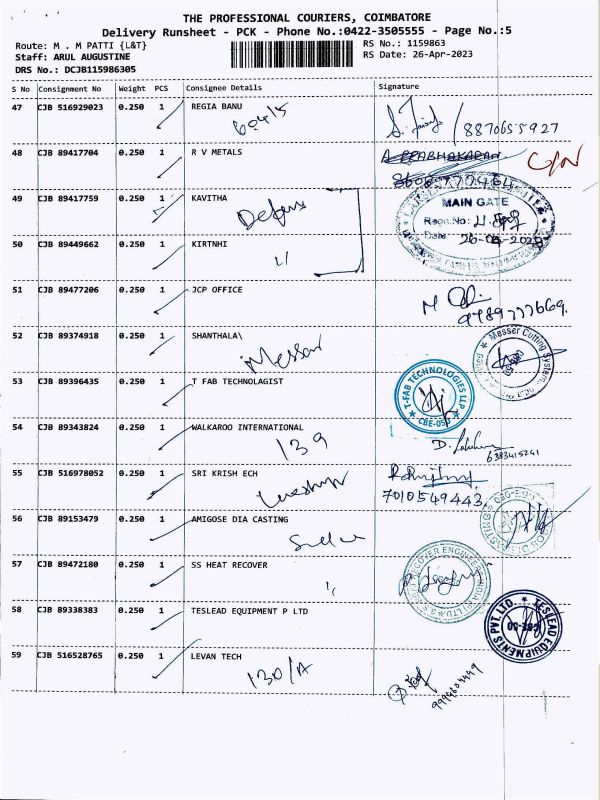 THE PROFESSIONAL COURIERS, COIMBATORE
Delivery Runsheet - PCK - Phone No.:0422-3505555 - Page No.:5
Route: M . M PATTI {L&T}
RS No.: 1159863
Staff: ARUL AUGUSTINE
RS Date: 26-Apr-2023
DRS No.: DCJB115986305
S No Consignment No Weight PCS Consignee Details Signature
47 CJB 516929023 0.250 1 REGIA BANU
604/5
8870655927
48 CJB 89417704 0.250 1 R V METALS
A PRABHAKARAN
49 CJB 89417759 0.250 1 KAVITHA
MAIN GATE
50 CJB 89449662 0.250 1 KIRTNHI
51 CJB 89477206 0.250 1 JCP OFFICE
9789777669.
52 CJB 89374918 0.250 1 SHANTHALA\
Messer
Messer Cutting System
53 CJB 89396435 0.250 1 T FAB TECHNOLAGIST
T-FAB TECHNOLOGIES LLP
54 CJB 89343824 0.250 1 WALKAROO INTERNATIONAL
139
6383415241
55 CJB 516978052 0.250 1 SRI KRISH ECH
7010549443
56 CJB 89153479 0.250 1 AMIGOSE DIA CASTING
57 CJB 89472180 0.250 1 SS HEAT RECOVER
58 CJB 89338383 0.250 1 TESLEAD EQUIPMENT P LTD
TESLEAD EQUIPMENTS PVT. LTD.
CBE-50
59 CJB 516528765 0.250 1 LEVAN TECH
130/A